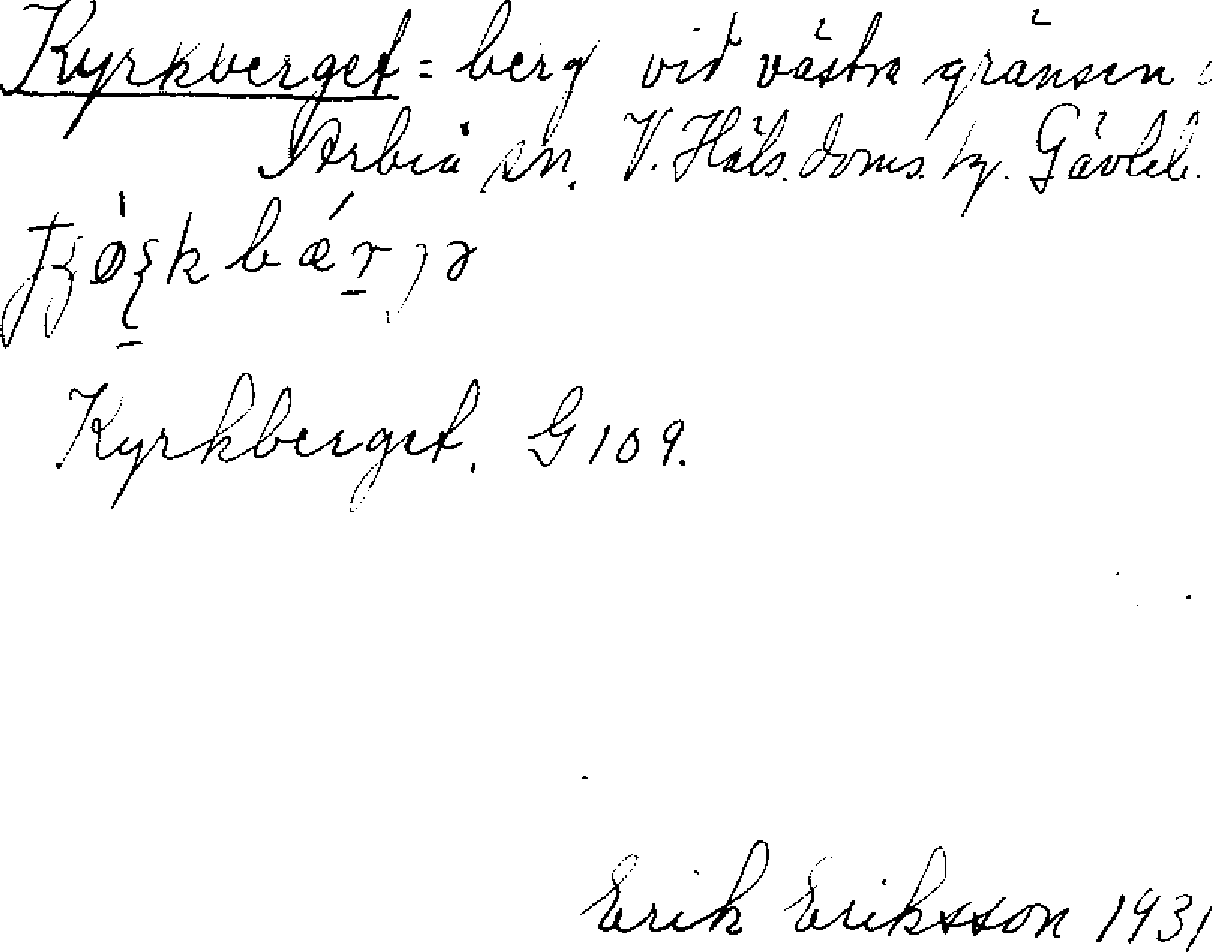 Kyrkberget = berg vid västra gränsen
Arbrå sn. V. Häls. doms. hg. Gävleb.
Kyrkberget. G 109.
Erik Eriksson 1931